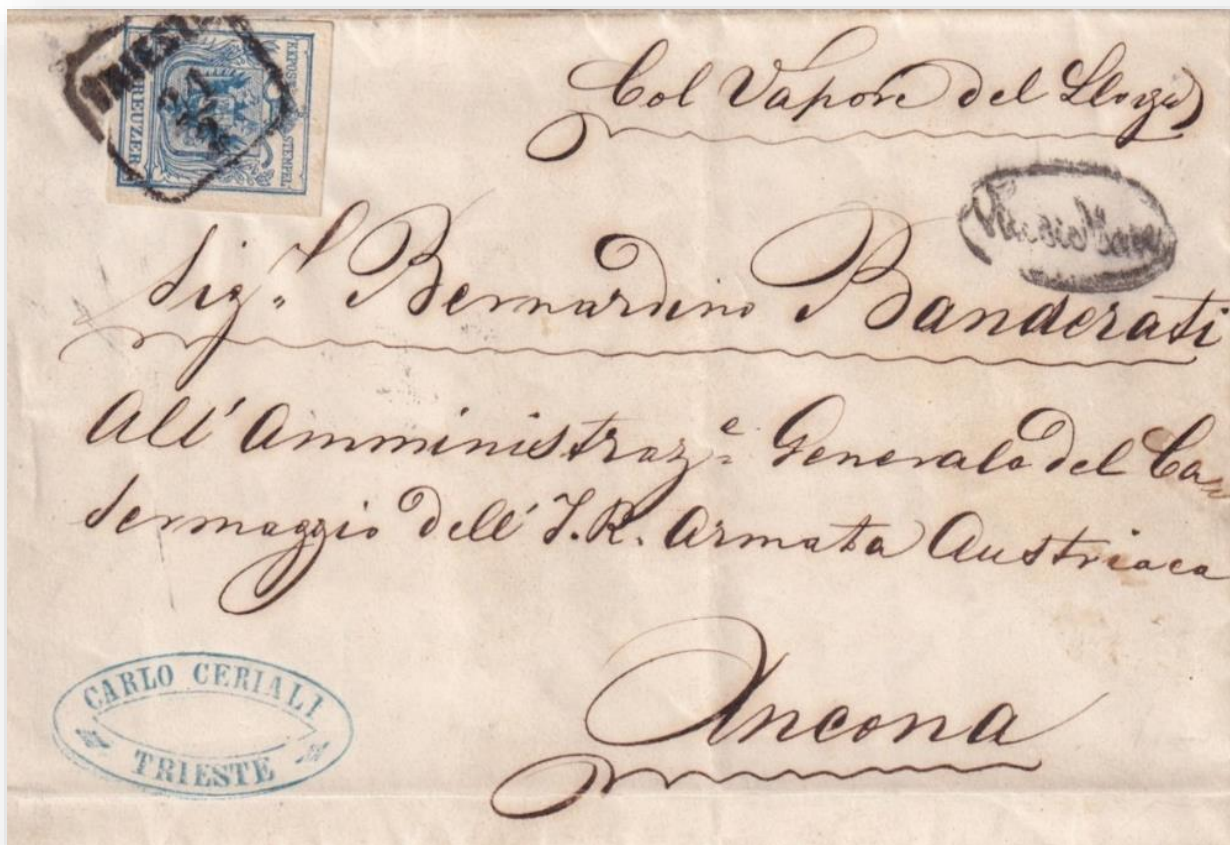 TRIEST
KK POST-STEMPEL
KREUZER
Col Vapore del Lloyd
Via di Mare
Sigr. Bernardino Banderati
All' Amministraze. Generale del Ca
sermaggio dell' I. R. Armata Austriaca
Ancona
CARLO CERIALI
TRIESTE